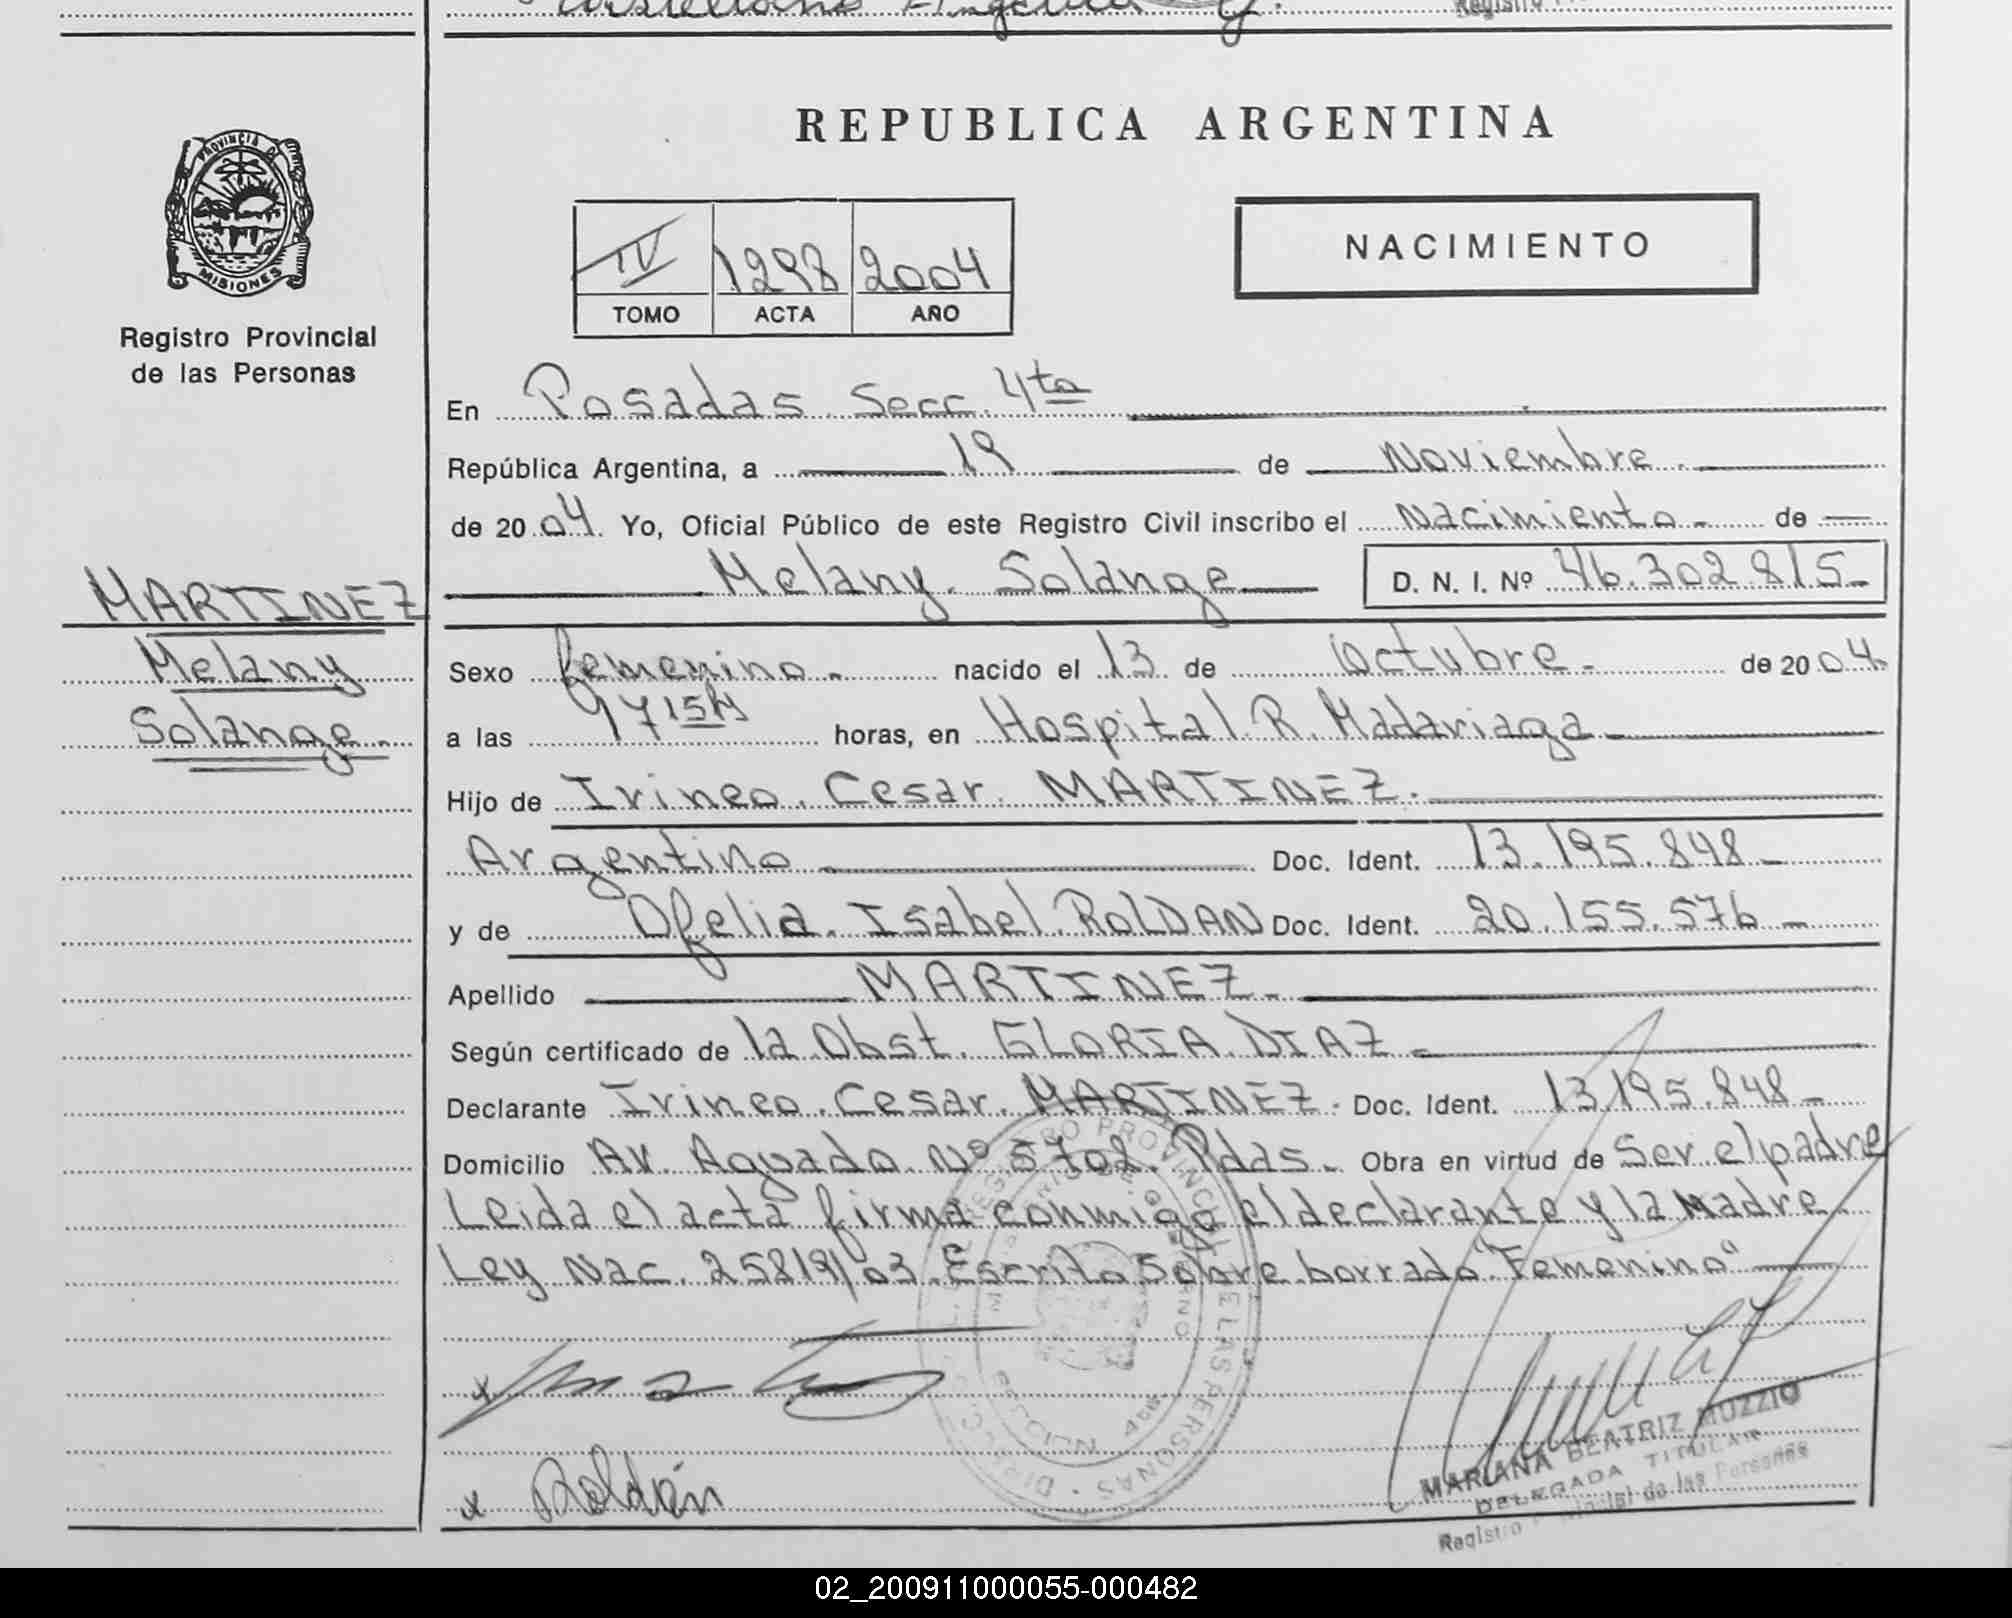 Castellano Angelica G.
REPUBLICA ARGENTINA
PROVINCIA DE
MISIONES
Registro Provincial
de las Personas
IV 1298 2004
TOMO ACTA AÑO
NACIMIENTO
En Posadas Secc. 4ta
República Argentina, a 19 de Noviembre.
de 2004. Yo, Oficial Público de este Registro Civil inscribo el Nacimiento.- de
Melany Solange D. N. I. Nº 46.302.815-
MARTINEZ
Melany
Solange.-
Sexo femenino.- nacido el 13 de Octubre.- de 2004.
a las 9 y 15hs horas, en Hospital R. Madariaga-
Hijo de Irineo Cesar MARTINEZ.
Argentino Doc. Ident. 13.195.848-
y de Ofelia Isabel ROLDAN Doc. Ident. 20.155.576-
Apellido MARTINEZ-
Según certificado de la Obst. GLORIA DIAZ-
Declarante Irineo Cesar MARTINEZ. Doc. Ident. 13.195.848-
Domicilio Av. Aguado Nº 5702. Pdas. Obra en virtud de Ser el padre
Leida el acta firma conmigo el declarante y la Madre.
Ley Nac. 25819/03. Escrito Sobre borrado "Femenino"
x
x Roldán
MARIANA BEATRIZ MUZZIO
DELEGADA TITULAR
Registro Provincial de las Personas
02_200911000055-000482